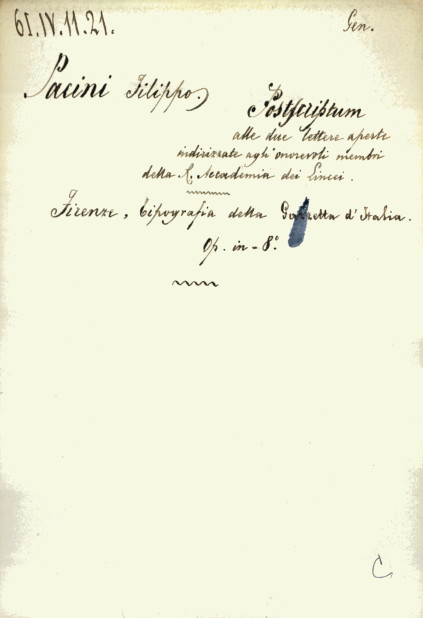 61.IV.11.21.
Gen.
Pacini Filippo.
Postscriptum
alle due lettere aperte
indirizzate agli onorevoli membri
della R. Accademia dei Lincei.
Firenze, tipografia della Gazzetta d'Italia.
Op. in-8°.
C